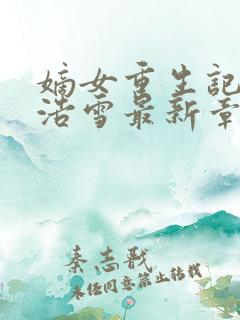 嫡女重生記
浩雪最新章
秦志戬
未经同意禁止转载